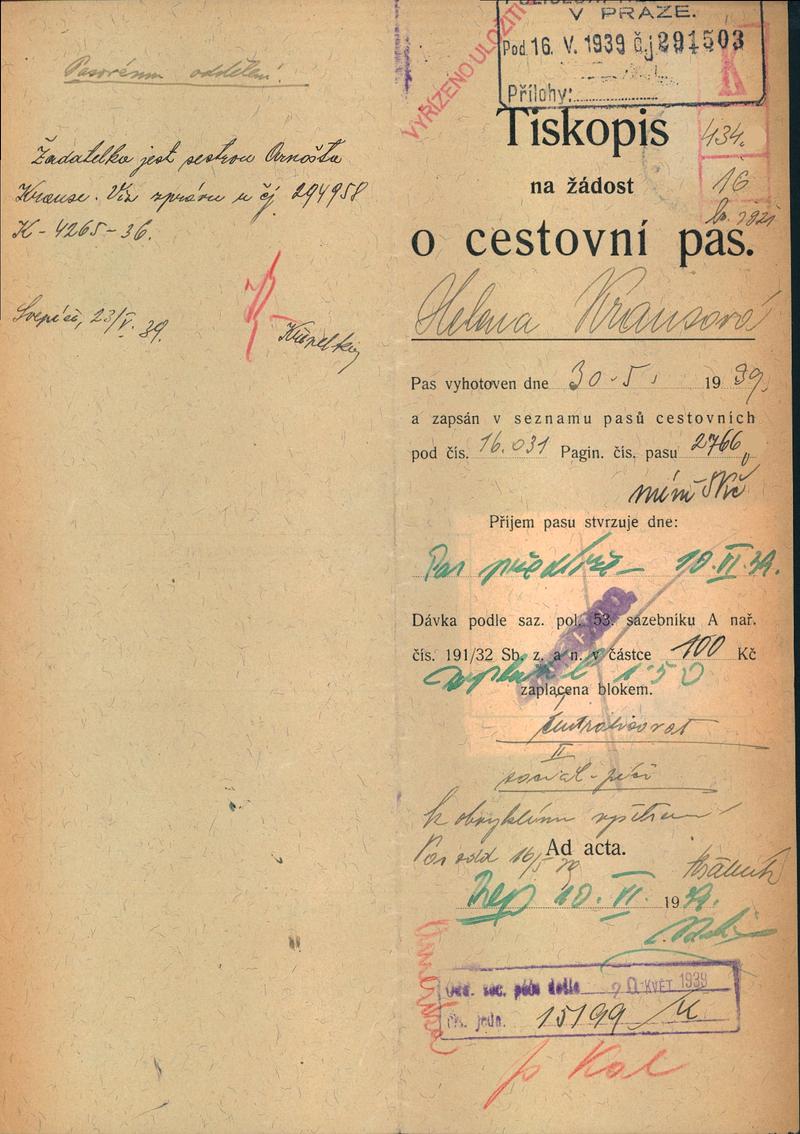 Pasovému oddělení.
Žadatelka jest sestrou Arnošta
Krause. Viz zprávu u čj 294958
K-4265-36.
23/V. 39.
V PRAZE.
Pod 16. V. 1939 č.j 291503
Přílohy:
VYŘÍZENO ULOŽITI
K
434.
16
Tiskopis
na žádost
o cestovní pas.
Helena Krausová
Pas vyhotoven dne 30.5. 1939.
a zapsán v seznamu pasů cestovních
pod čís. 16.031 Pagin. čís. pasu 2766
Příjem pasu stvrzuje dne:
10.VI.39.
Dávka podle saz. pol. 53. sazebníku A nař.
čís. 191/32 Sb. z. a n. v částce 100 Kč
1.50
zaplacena blokem.
centralisovat
II
sociál-péči
k obvyklému
Pas odd 16/5 39
Ad acta.
10. VI. 1939.
Odd. soc. péče došlo 20 KVĚT 1939
Čís. jedn. 15199